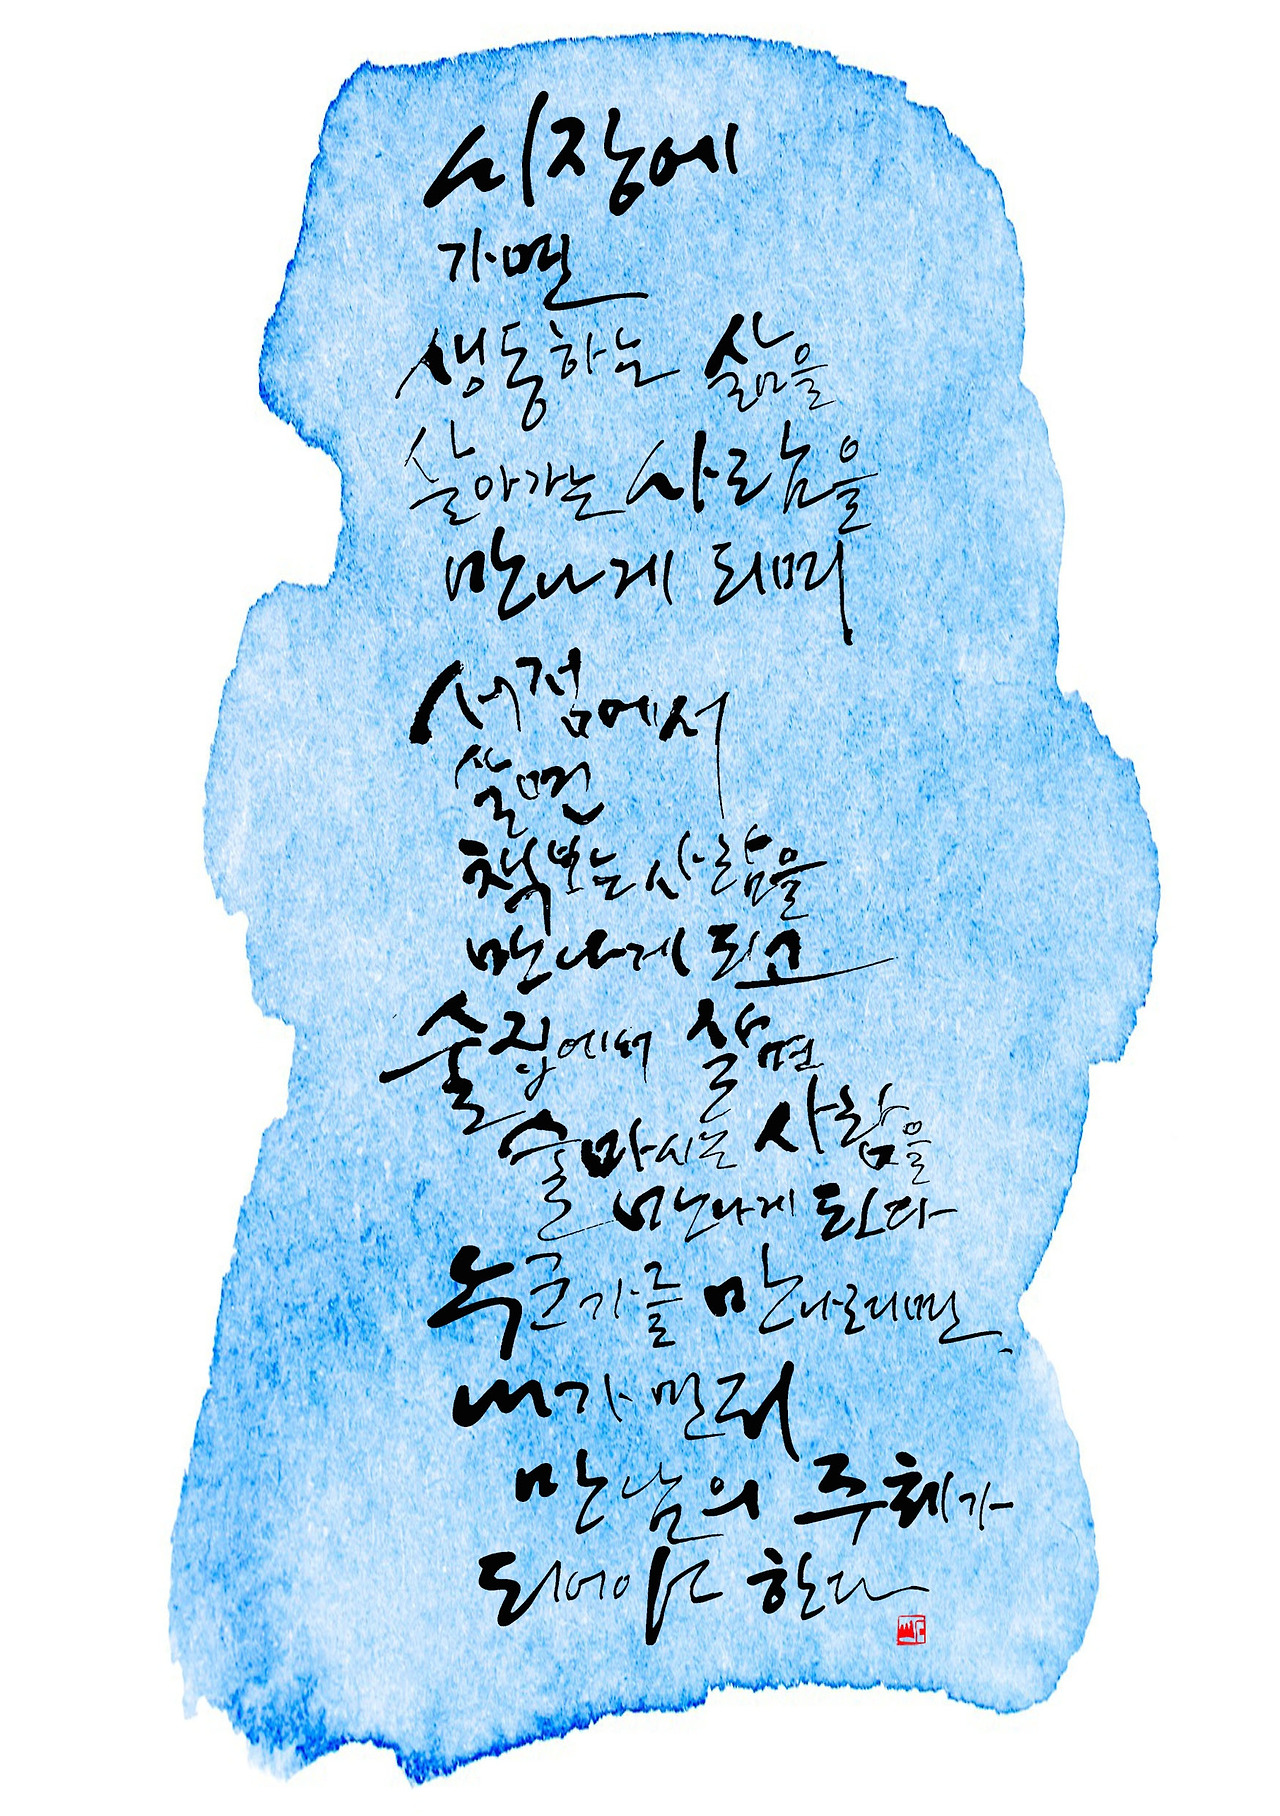 시장에
가면
생동하는 삶을
살아가는 사람을
만나게 되며
서점에서
살면
책보는 사람을
만나게 되고
술집에서 살면
술마시는 사람을
만나게 된다
누군가를 만나려면
내가 먼저
만남의 주체가
되어야 한다